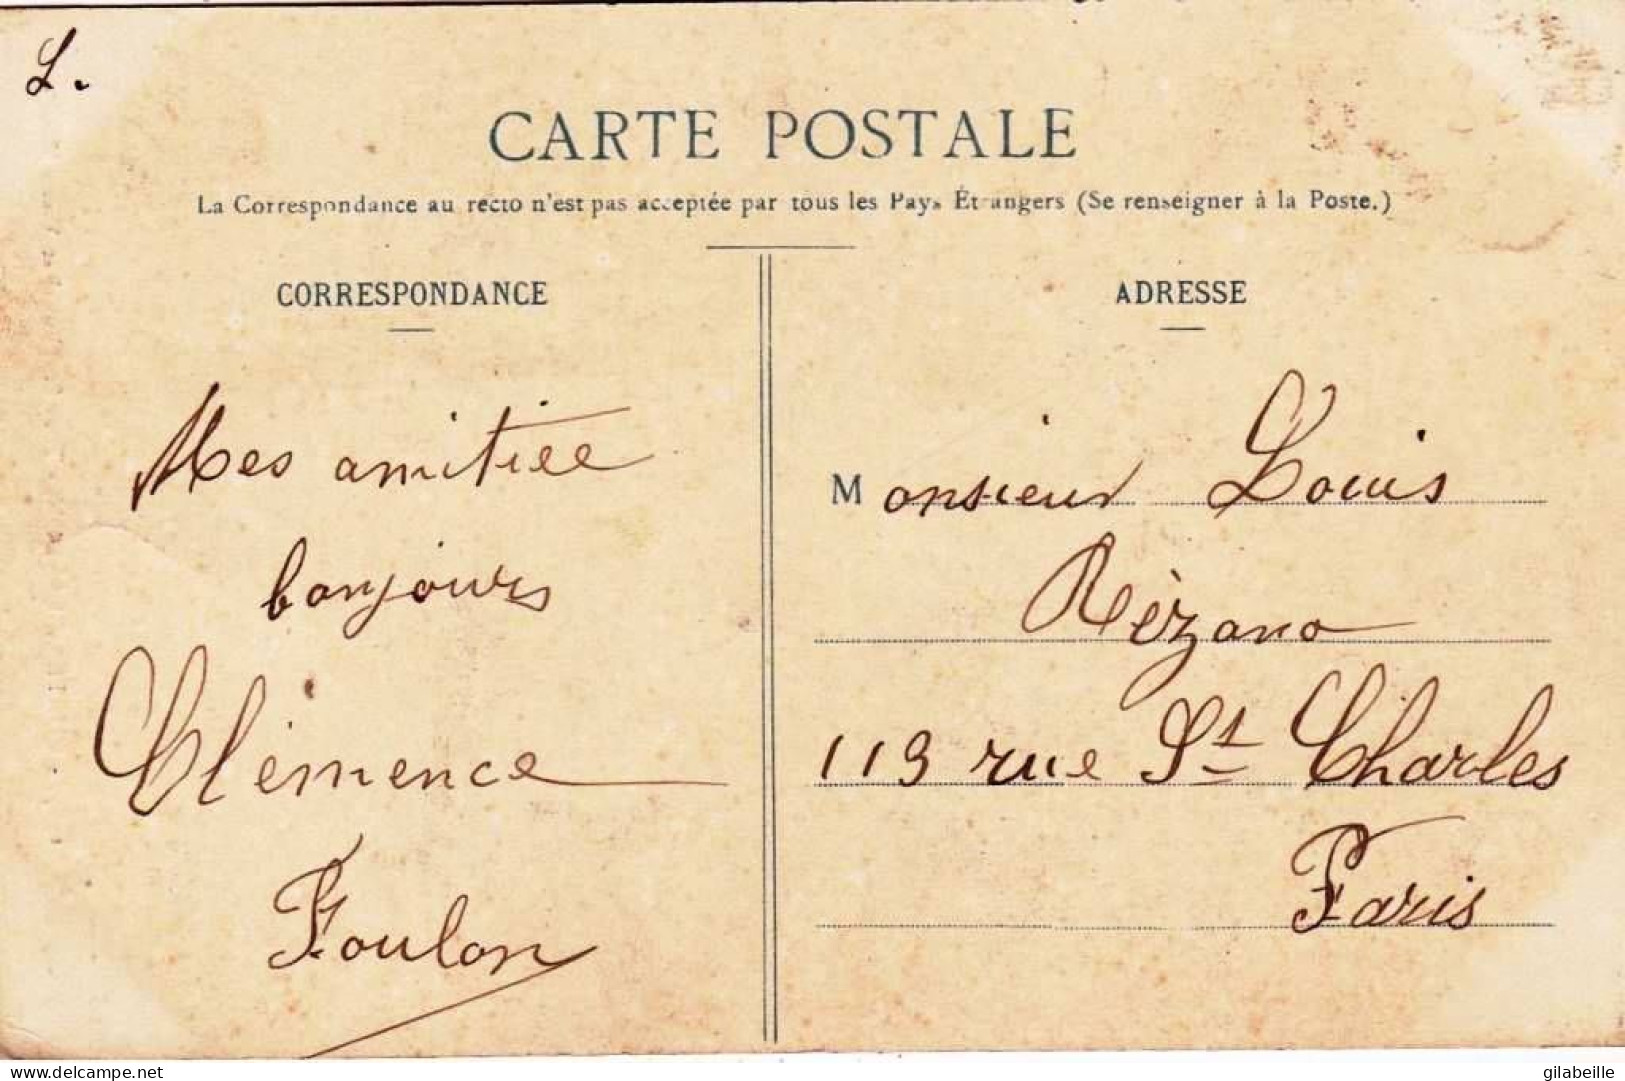 L.
CARTE POSTALE
La Correspondance au recto n'est pas acceptée par tous les Pays Étrangers (Se renseigner à la Poste.)
CORRESPONDANCE
Mes amitiee
bonjours
Clémence
Foulon
ADRESSE
Monsieur Louis
Rèzano
119 rue St Charles
Paris
delcampe.net
gilabeille